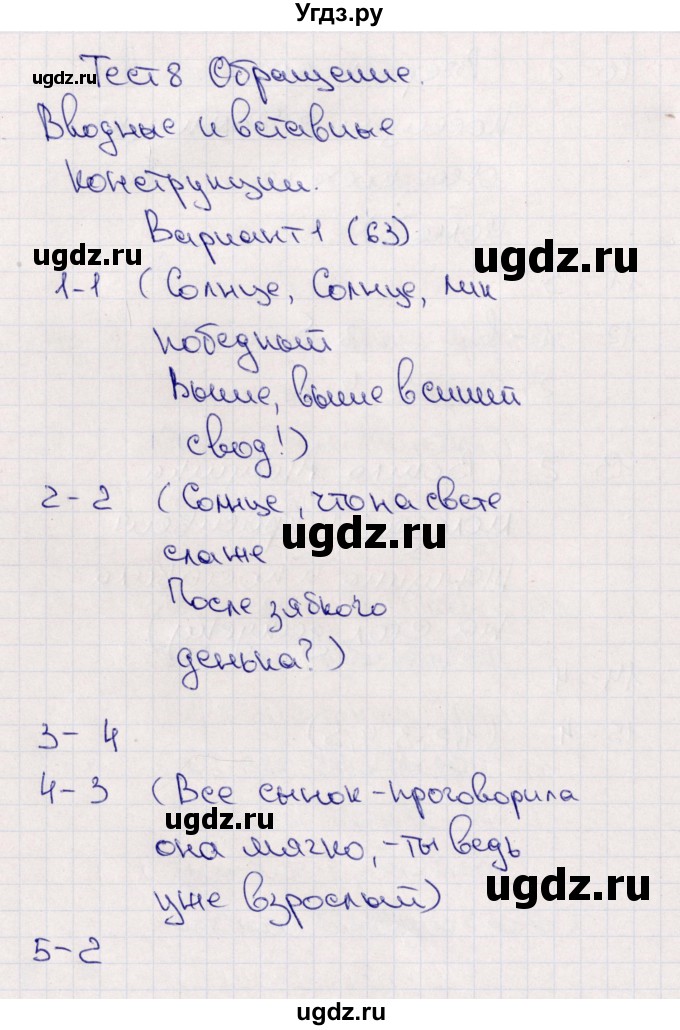 Угдз.ру
Тест 8 Обращение.
Вводные и вставные
конструкции.
Вариант 1 (63)
1-1 (Солнце, Солнце, лик
победный
Выше, выше в синий
свод!)
2-2 (Солнце, что на свете
слаже
После зябкого
денька?)
3- 4
4-3 (Все сынок -проговорила
она мягко, -ты ведь
уже взрослый)
5-2
ugdz.ru
ugdz.ru
ugdz.ru
ugdz.ru
ugdz.ru
ugdz.ru
ugdz.ru
ugdz.ru